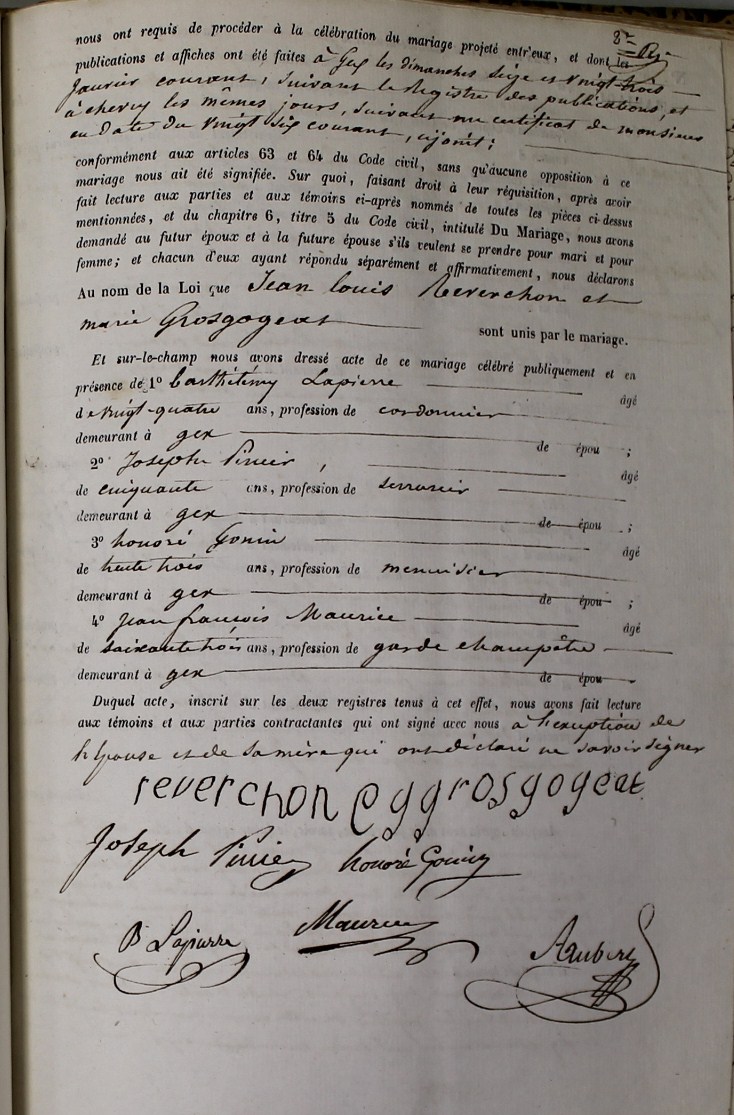 8
nous ont requis de procéder à la célébration du mariage projeté entr'eux, et dont les
publications et affiches ont été faites à Gex les dimanches seize et vingt-trois
Janvier courant, suivant le registre des publications, et
à chevry les mêmes jours, suivant un certificat de monsieur
en date du vingt six courant, cijoint;
conformément aux articles 63 et 64 du Code civil, sans qu'aucune opposition à ce
mariage nous ait été signifiée. Sur quoi, faisant droit à leur réquisition, après avoir
fait lecture aux parties et aux témoins ci-après nommés de toutes les pièces ci-dessus
mentionnées, et du chapitre 6, titre 5 du Code civil, intitulé Du Mariage, nous avons
demandé au futur époux et à la future épouse s'ils veulent se prendre pour mari et pour
femme; et chacun d'eux ayant répondu séparément et affirmativement, nous déclarons
Au nom de la Loi que Jean louis Reverchon et
marie Grosgogeat sont unis par le mariage.
Et sur-le-champ nous avons dressé acte de ce mariage célébré publiquement et en
présence de 1º barthélémy Lapierre âgé
de vingt-quatre ans, profession de cordonnier
demeurant à gex de épou ;
2º Joseph , âgé
de cinquante ans, profession de serrurier
demeurant à gex de épou ;
3º honoré Gonin âgé
de trente trois ans, profession de menuisier
demeurant à gex de épou ;
4º jean françois Maurice âgé
de soixante trois ans, profession de garde champêtre
demeurant à gex de épou
Duquel acte, inscrit sur les deux registres tenus à cet effet, nous avons fait lecture
aux témoins et aux parties contractantes qui ont signé avec nous à l'exception de
l'épouse et de sa mère qui ont déclaré ne savoir signer
reverchon grosgogeat
Joseph honoré Gonin
B Lapierre Maurice Aubert